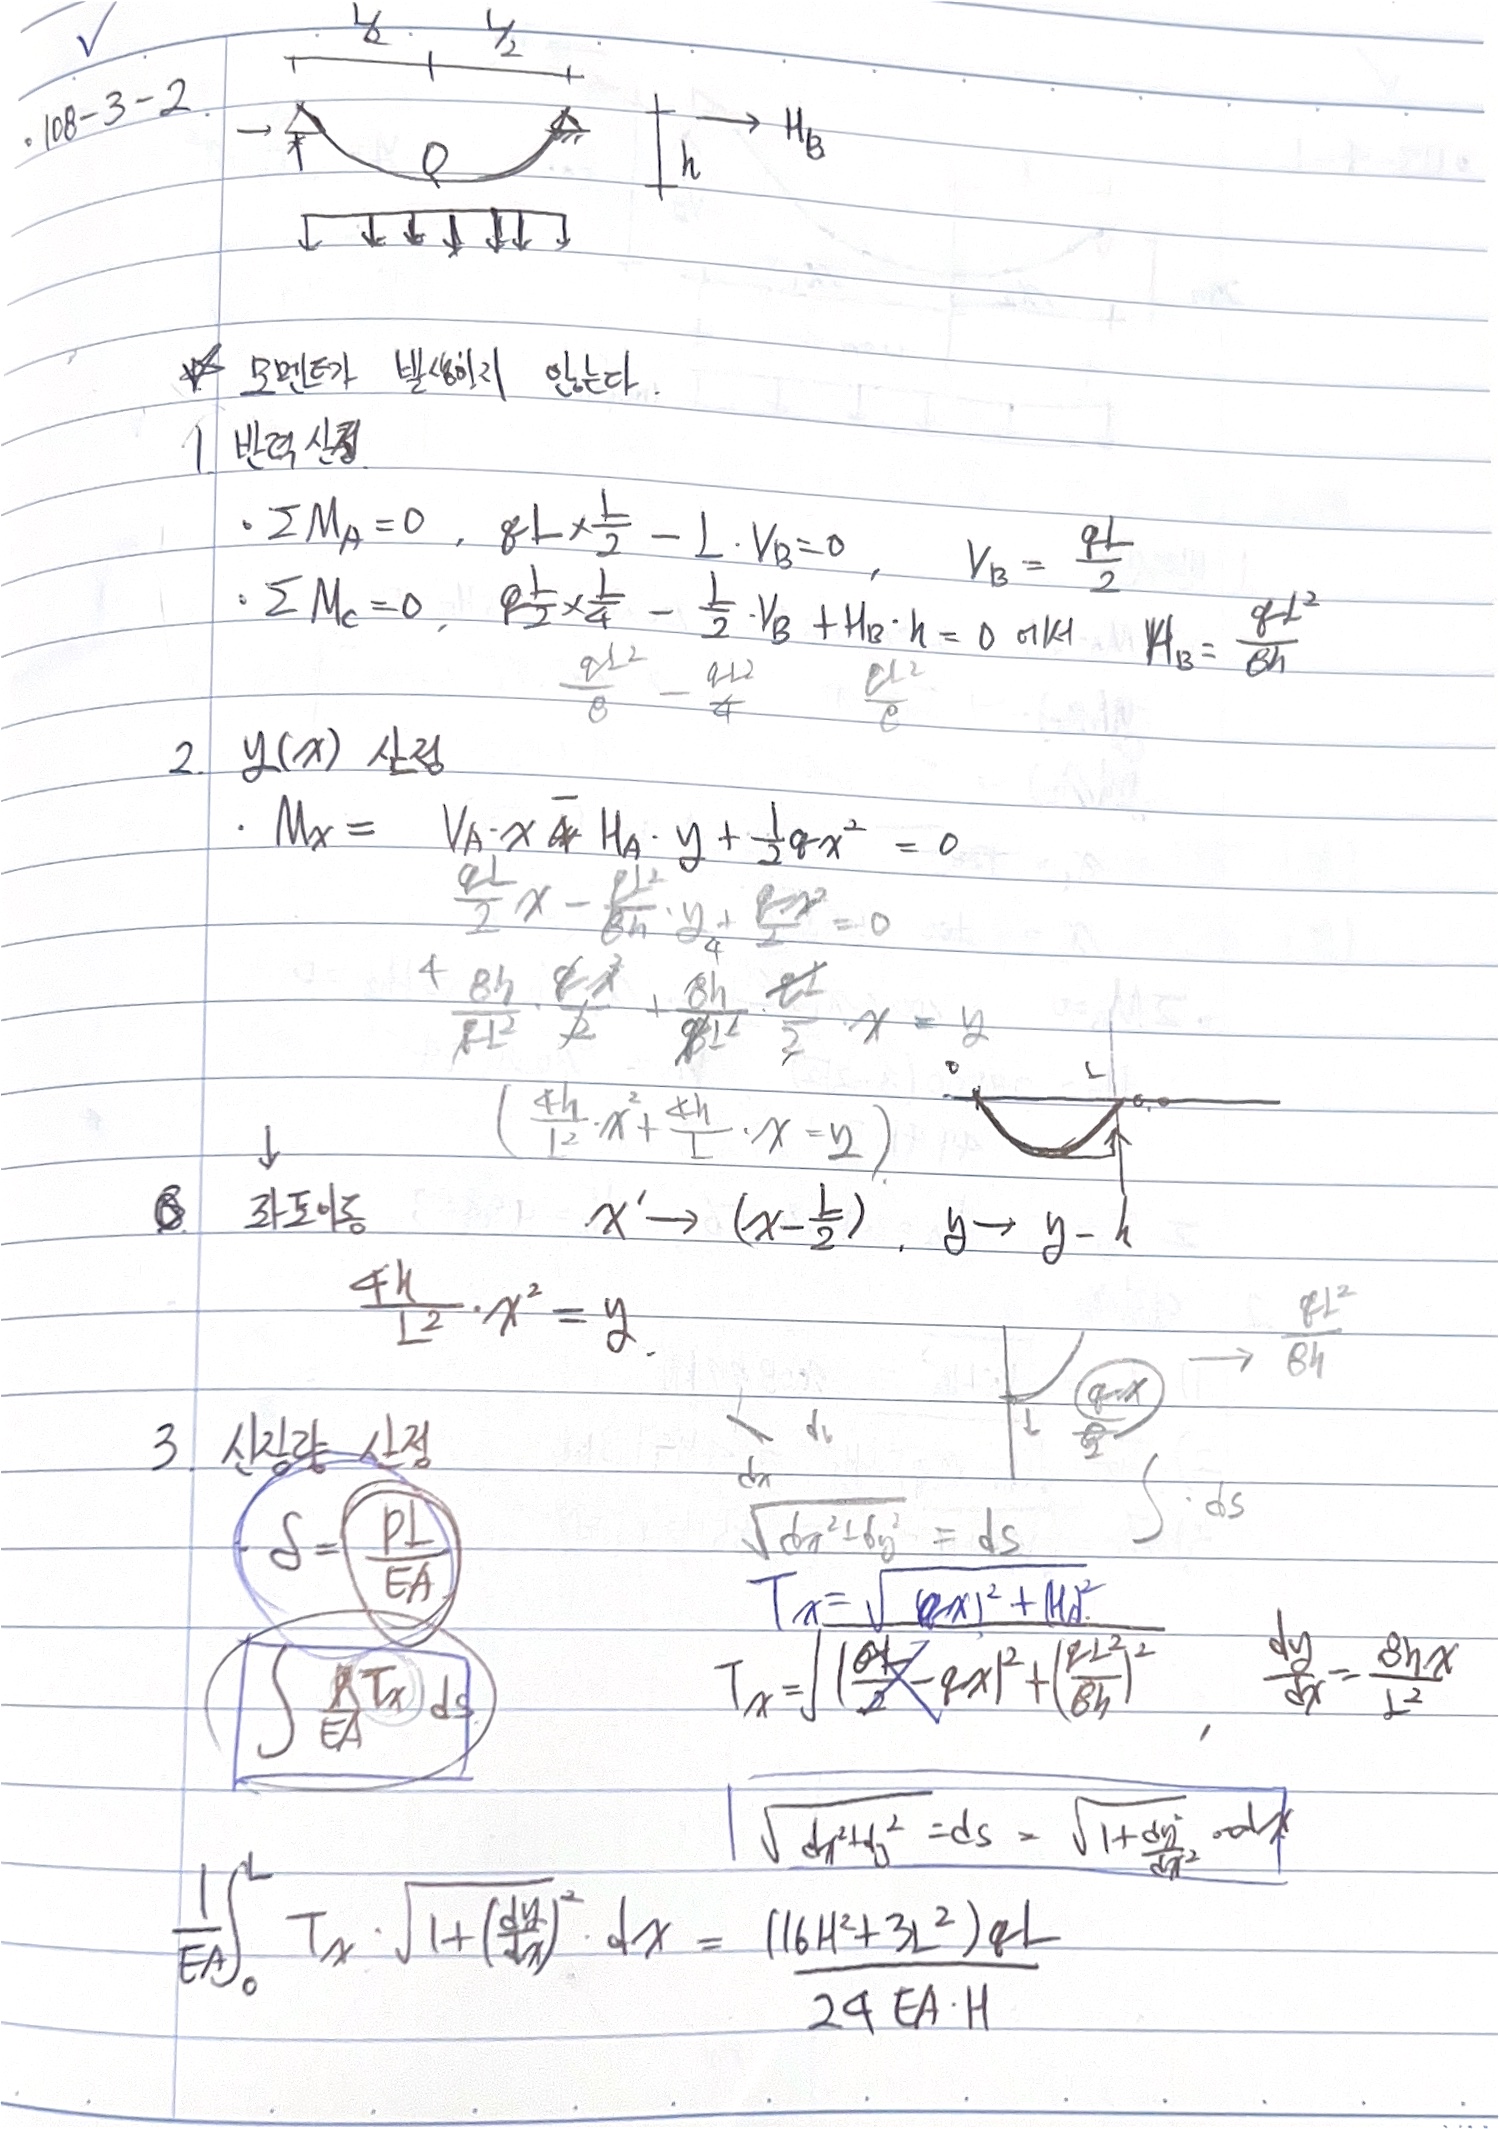 ✓
L/2 L/2
.108-3-2
→ H_B
h
Q
★ 모멘트가 발생하지 않는다.
1. 반력 산정
· ΣM_A = 0, qL × L/2 - L·V_B = 0, V_B = qL/2
· ΣM_C = 0, q L/2 × L/4 - L/2·V_B + H_B·h = 0 에서 H_B = qL²/8h
qL²/8 - qL²/4 qL²/8
2. y(x) 산정
· M_x = V_A·x - H_A·y + 1/2 qx² = 0
qL/2 x - qL²/8h·y + qx²/2 = 0
8h/qL² · qx²/2 + 8h/qL² · qL/2 · x = y
0 L
(4h/L²·x² + 4h/L·x = y)
↓
좌표이동 x' → (x - L/2), y → y - h
4h/L²·x² = y.
qx/2 → qL²/8h
3. 신장량 산정
dx
√(dx²+dy²) = ds ∫·ds
δ = PL/EA
T_x = √((qx)² + (H_A)²
∫ T_x/EA ds
T_x = √((qL/2 - qx)² + (qL²/8h)²), dy/dx = 8hx/L²
√(dx²+dy²) = ds = √(1+dy²/dx²)·dx
1/EA ∫₀ᴸ T_x·√(1+(dy/dx)²)·dx = (16H²+3L²)qL / 24EA·H